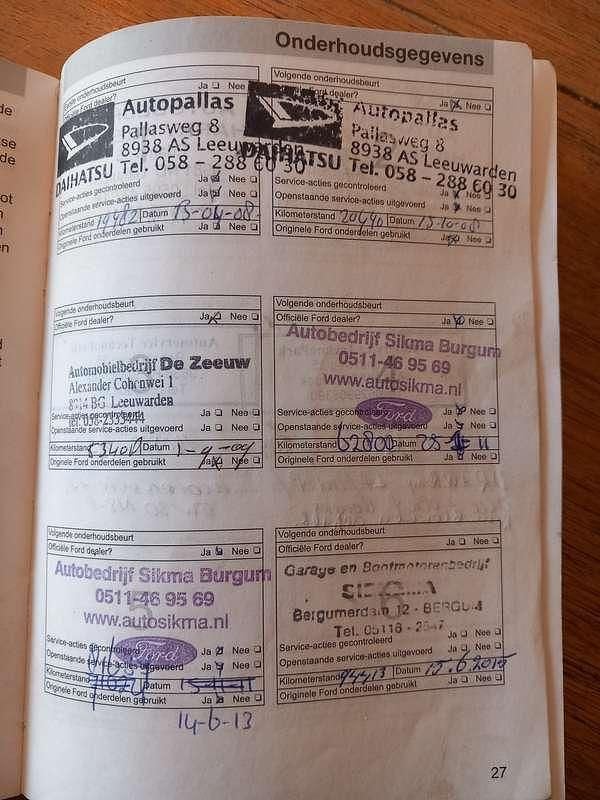 Onderhoudsgegevens
Volgende onderhoudsbeurt
Ja Nee
DAIHATSU
Autopallas
Pallasweg 8
8938 AS Leeuwarden
Tel. 058 - 288 60 30
Service-acties gecontroleerd Ja Nee
Openstaande service-acties uitgevoerd Ja Nee
Kilometerstand Datum 13-04-08
Originele Ford onderdelen gebruikt Ja Nee
Volgende onderhoudsbeurt
Ja Nee
DAIHATSU
Autopallas
Pallasweg 8
8938 AS Leeuwarden
Tel. 058 - 288 60 30
Service-acties gecontroleerd Ja Nee
Openstaande service-acties uitgevoerd Ja Nee
Kilometerstand Datum 13-10-08
Originele Ford onderdelen gebruikt Ja Nee
Volgende onderhoudsbeurt
Officiële Ford dealer? Ja Nee
Automobielbedrijf De Zeeuw
Alexander Cohenwei 1
8914 BG Leeuwarden
tel. 058-2333444
Service-acties gecontroleerd Ja Nee
Openstaande service-acties uitgevoerd Ja Nee
Kilometerstand 53400 Datum 1-9-09
Originele Ford onderdelen gebruikt Ja Nee
Volgende onderhoudsbeurt
Officiële Ford dealer? Ja Nee
Autobedrijf Sikma Burgum
0511-46 95 69
www.autosikma.nl
Ford
Service-acties gecontroleerd Ja Nee
Openstaande service-acties uitgevoerd Ja Nee
Kilometerstand 62800 Datum
Originele Ford onderdelen gebruikt Ja Nee
Volgende onderhoudsbeurt
Officiële Ford dealer? Ja Nee
Autobedrijf Sikma Burgum
0511-46 95 69
www.autosikma.nl
Ford
Service-acties gecontroleerd Ja Nee
Openstaande service-acties uitgevoerd Ja Nee
Kilometerstand Datum
Originele Ford onderdelen gebruikt Ja Nee
14-6-13
Volgende onderhoudsbeurt
Officiële Ford dealer? Ja Nee
Garage en Bootmotorenbedrijf
Bergumerdam 12 - BERGUM
Tel. 05116 - 2547
Service-acties gecontroleerd Ja Nee
Openstaande service-acties uitgevoerd Ja Nee
Kilometerstand 94413 Datum 15.6.2015
Originele Ford onderdelen gebruikt Ja Nee
27